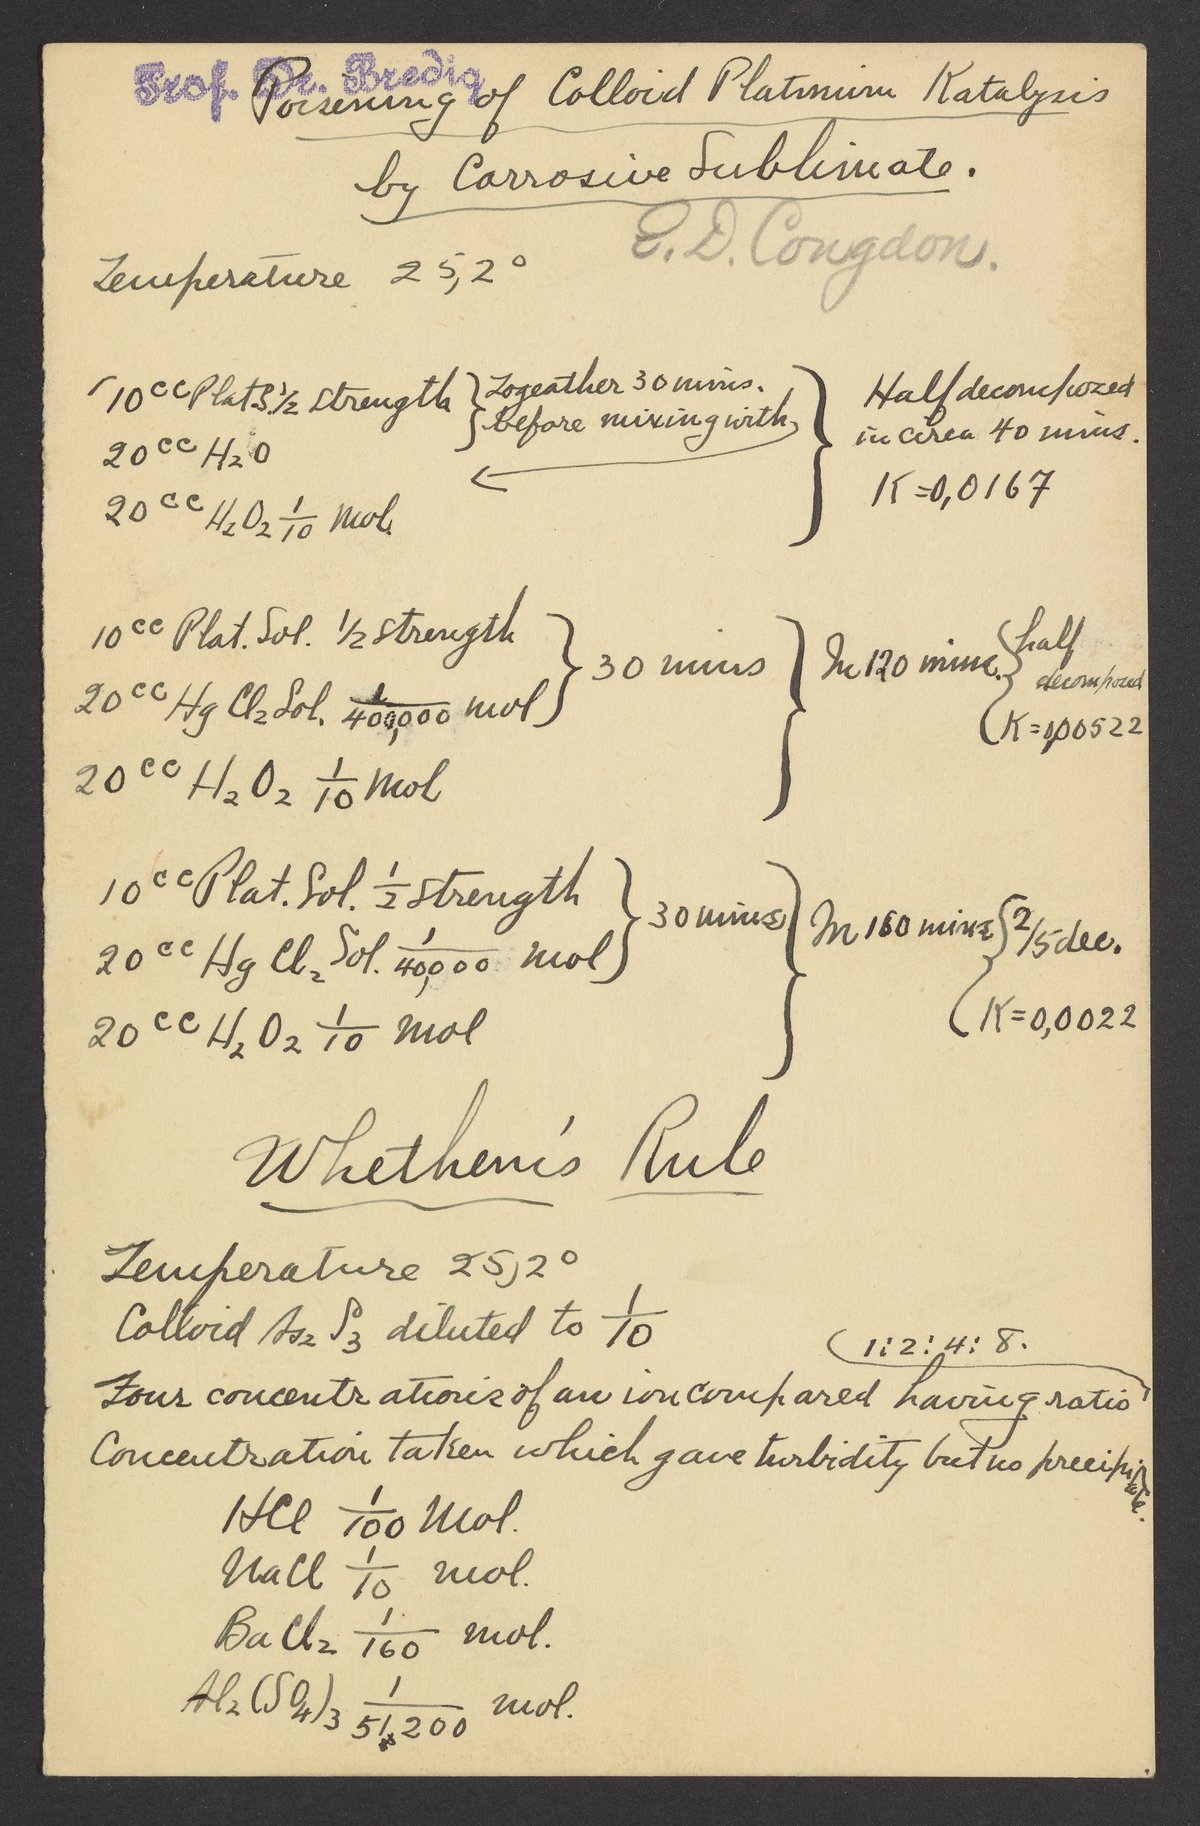 Prof. Dr. Bredig
Poisening of Colloid Platinium Katalysis
by Corrosive Sublimate.
E. D. Congdon.
Temperature 25,2°
10cc Plat S. 1/2 strength } Togeather 30 mins. } Half decompozed
before mixing with in circa 40 mins.
20cc H2O
K=0,0167
20cc H2O2 1/10 mol.
10cc Plat. Sol. 1/2 strength } 30 mins } In 120 mins. { half
decompozed
20cc Hg Cl2 Sol. 1/400,000 mol
K=0,00522
20cc H2O2 1/10 mol
10cc Plat. Sol. 1/2 strength } 30 mins } In 160 mins { 2/5 dec.
20cc Hg Cl2 Sol. 1/40,000 mol
K=0,0022
20cc H2O2 1/10 mol
Whethem's Rule
Temperature 25,2°
Colloid As2 S3 diluted to 1/10
1:2:4:8.
Four concentrations of an ion compared having ratio
Concentration taken which gave turbidity but no precipitate.
HCl 1/100 Mol.
NaCl 1/10 mol.
Ba Cl2 1/160 mol.
Al2(SO4)3 1/51,200 mol.